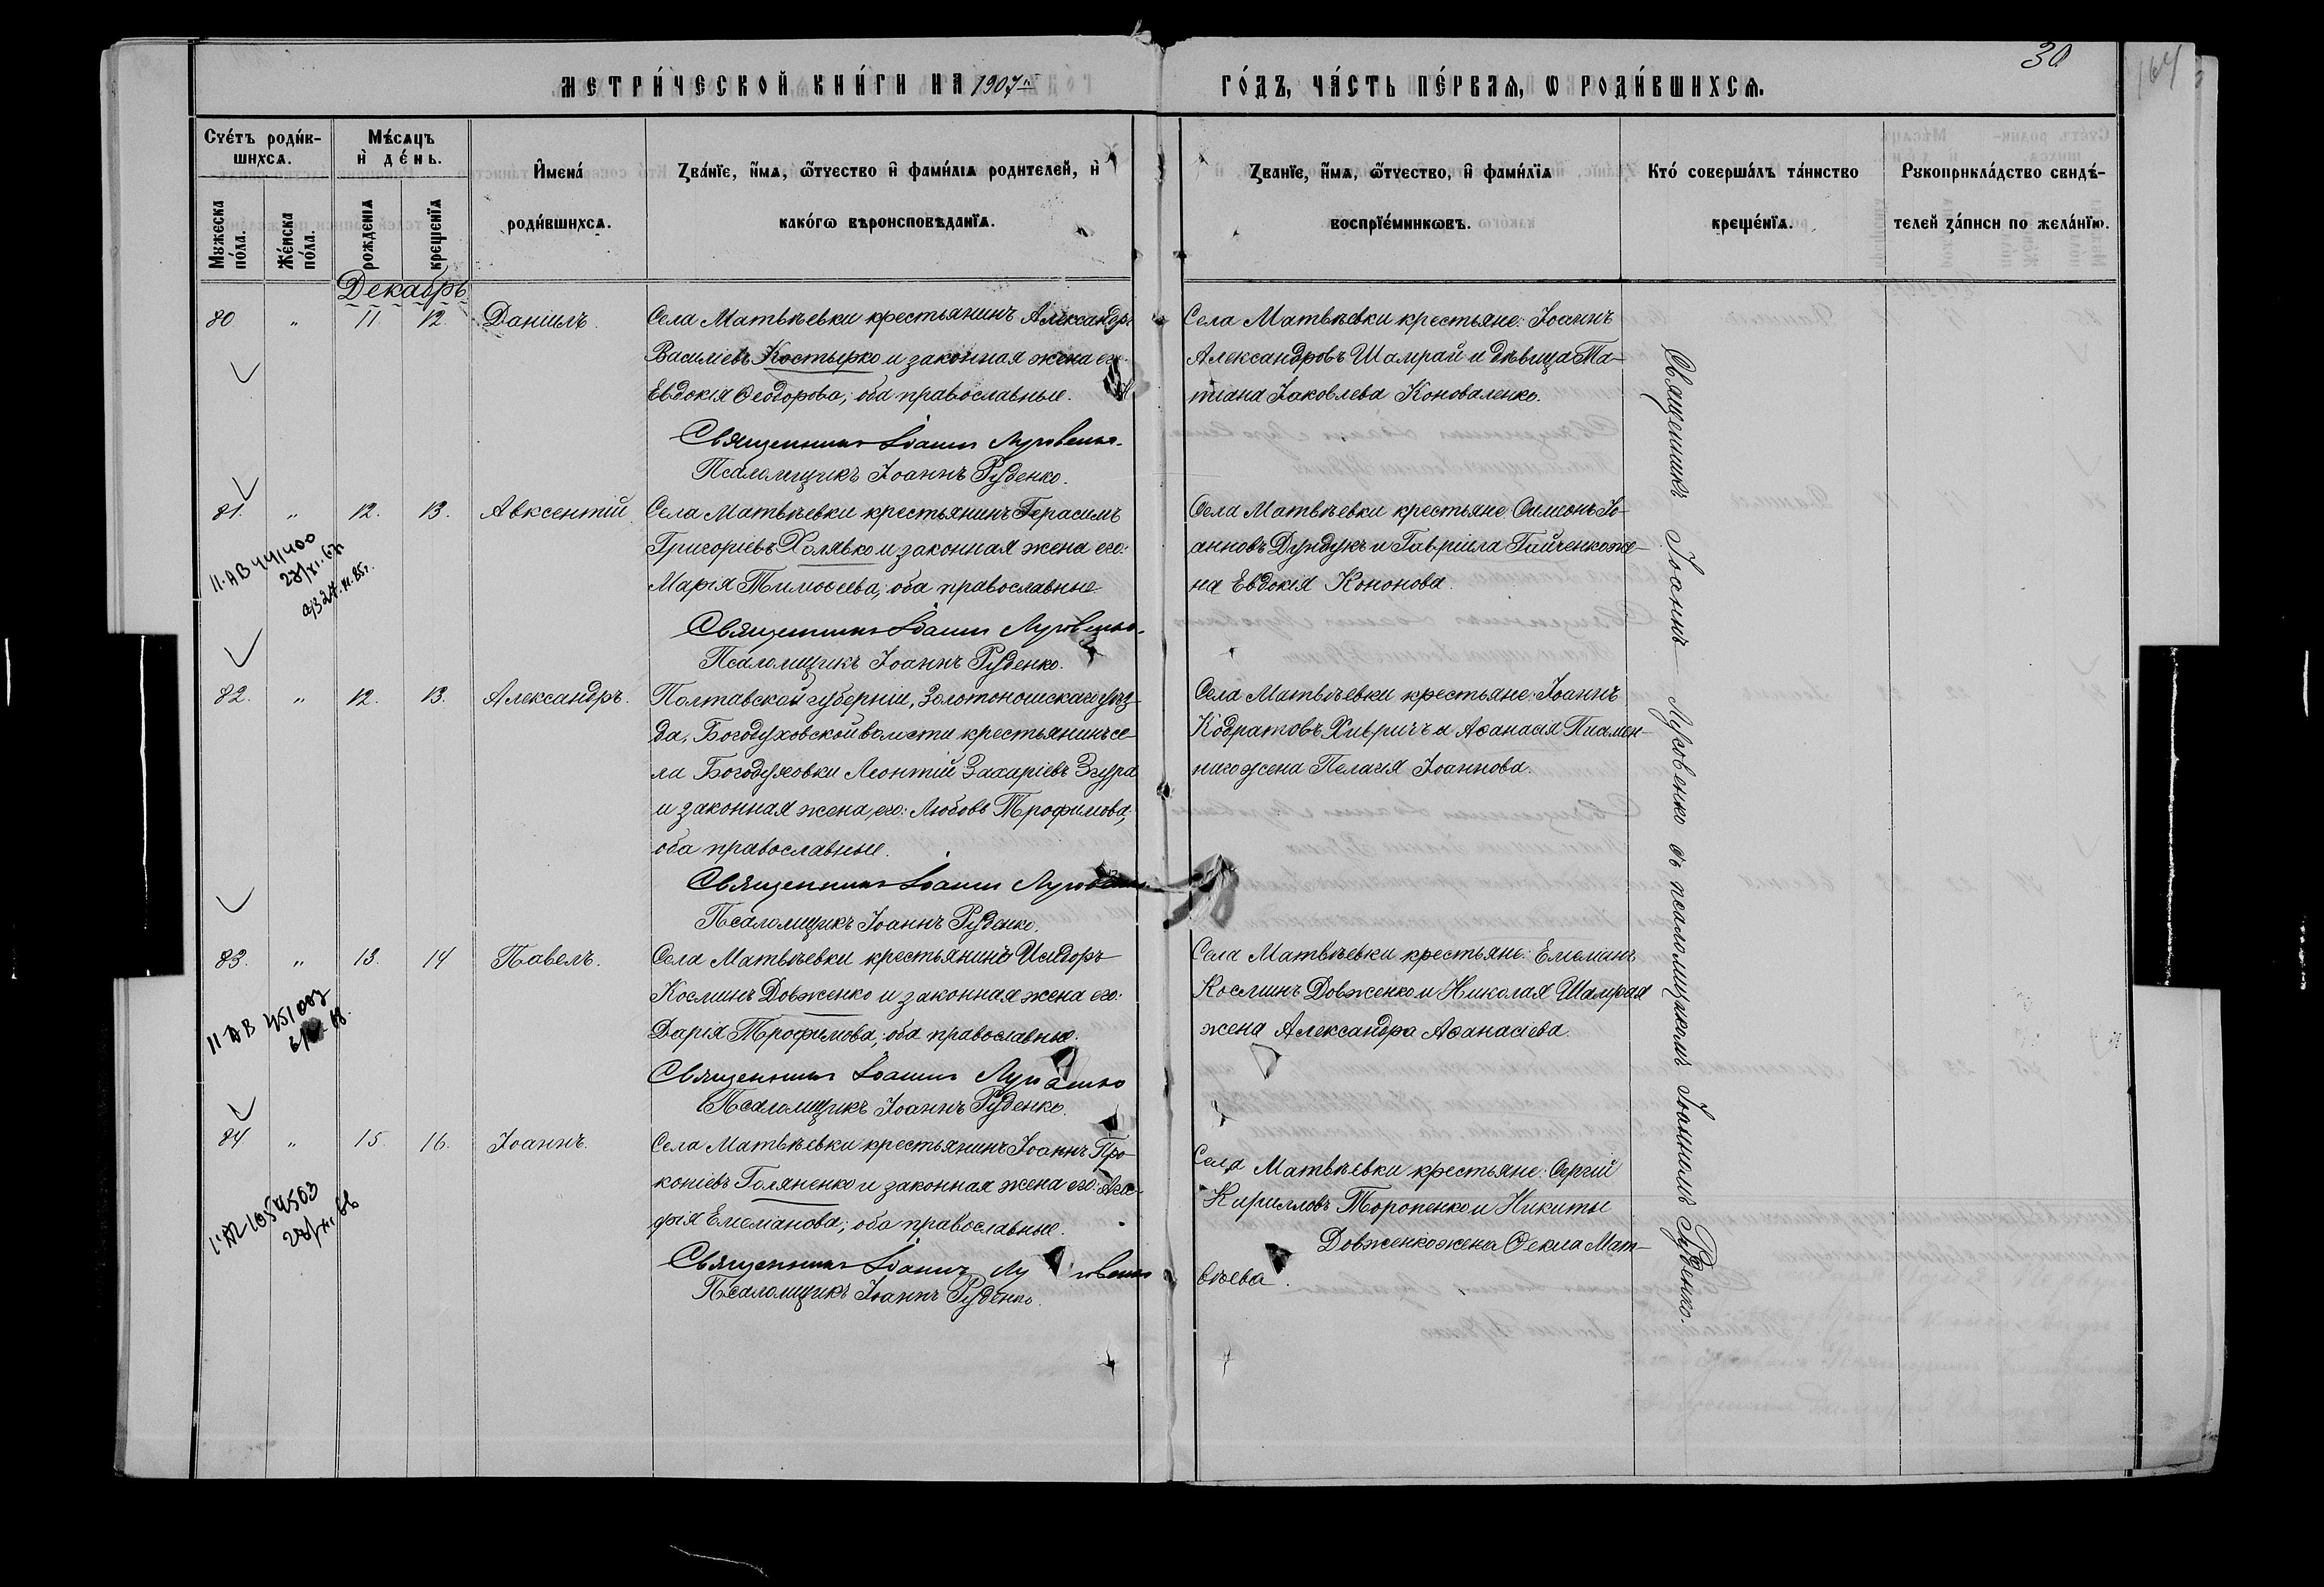 МЕТРИ́ЧЕСКОЙ КНИ́ГИ НА 1907й ГО́ДЪ, ЧА́СТЬ ПЕ́РВАѦ, Ѡ РОДИ́ВШИХСѦ.
30
164
Счетъ роди́в-
шихсѧ.
Мѣ́сѧцъ
и҆ де́нь.
Мужеска по́ла.
Же́нска по́ла.
рожденїѧ
крещенїѧ
И҆мена́
роди́вшихсѧ.
Зва́нїе, и҆́мѧ, ѻ҆́тчество и҆ фами́лїѧ родителей, и҆
како́гѡ вѣроисповѣданїѧ.
Званїе, и҆́мѧ, ѻ҆́тчество, и҆ фами́лїѧ
воспрїе́мникѡвъ.
Кто́ соверша́лъ та́инство
креще́нїѧ.
Рукоприкла́дство свидѣ́-
телей за́писи по жела́нїю.
Декабрь
80 " 11. 12. Даніилъ.
Села Матвѣевки крестьянинъ Александръ
Василіевъ Костырко и законная жена его:
Евдокія Ѳеодорова; оба православные.
Священникъ Іоаннъ Луговенко.
Псаломщикъ Іоаннъ Руденко.
Села Матвѣевки крестьяне: Іоаннъ
Александровъ Шамрай и дѣвица Та-
тіана Іаковлева Коноваленко.
81. " 12. 13. Авксентій
II-АВ 441400
Села Матвѣевки крестьянинъ Герасимъ
Григоріевъ Холявко и законная жена его:
Марія Тимоѳеева; оба православные.
Священникъ Іоаннъ Луговенко.
Псаломщикъ Іоаннъ Руденко.
Села Матвѣевки крестьяне: Симеонъ Іо-
анновъ Дундукъ и Гавріила Гайченко же-
на Евдокія Кононова.
82. " 12. 13. Александръ.
Полтавской губерніи, Золотоношскаго уѣз-
да, Богодуховской волости крестьянинъ се-
ла Богодуховки Леонтій Захаріевъ Згура
и законная жена его: Любовь Трофимова;
оба православные.
Священникъ Іоаннъ Луговенко.
Псаломщикъ Іоаннъ Руденко.
Села Матвѣевки крестьяне: Іоаннъ
Кодратовъ Хивричъ и Аѳанасія Писмен-
наго жена Пелагія Іоаннова.
83. " 13. 14 Павелъ.
II-АВ 451007
Села Матвѣевки крестьянинъ Исидоръ
Косминъ Довженко и законная жена его:
Дарія Трофимова; оба православные.
Священникъ Іоаннъ Луговенко
Псаломщикъ Іоаннъ Руденко.
Села Матвѣевки крестьяне: Емеліанъ
Косминъ Довженко и Николая Шамрая
жена Александра Аѳанасіева.
84 " 15. 16. Іоаннъ.
Села Матвѣевки крестьянинъ Іоаннъ Про-
копіевъ Голяненко и законная жена его: Ага-
фія Емеліанова; оба православные.
Священникъ Іоаннъ Луговенко
Псаломщикъ Іоаннъ Руденко.
Села Матвѣевки крестьяне: Сергій
Кирилловъ Торопенко и Никиты
Довженко жена Ѳекла Мат-
вѣева.
Священникъ Іоаннъ Луговенко съ псаломщикомъ Іоанномъ Руденко.